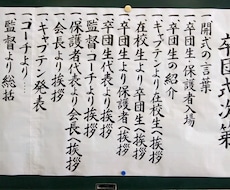 卒団式次第
一 開式の言葉
一 卒団生・保護者入場
一 卒団生の紹介
一 キャプテンより在校生へ挨拶
一 在校生より卒団生へ挨拶
一 卒団生より保護者へ挨拶
一 卒団生代表より挨拶
一 監督コーチより挨拶
一 保護者代表より会長へ挨拶
一 会長より挨拶
一 キャプテン発表
コーチより
一 監督より総括